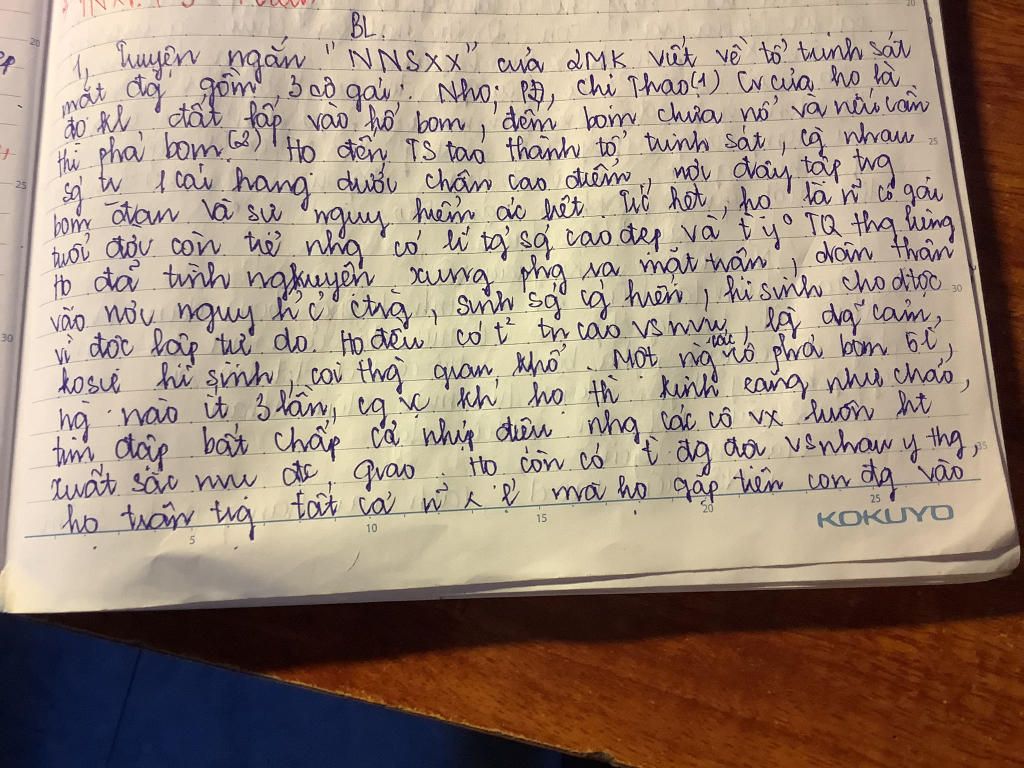 BL.
1, Truyện ngắn "NNSXX" của LMK viết về tổ trinh sát
mặt đg gồm 3 cô gái: Nho, PĐ, chị Thao(1) Cv của họ là
đo kl đất lấp vào hố bom, đếm bom chưa nổ và nếu cần
thì phá bom.(2) Họ đến TS tạo thành tổ trinh sát, cg nhau
sg tr 1 cái hang dưới chân cao điểm, nơi đây tập trg
bom đạn và sự nguy hiểm ác liệt. Trc hết, họ là n~ cô gái
tuổi đời còn trẻ nhg có lí tg sg cao đẹp và t y TQ thg liêng
Họ đã tình nguyện xung phg ra mặt trận, dấn thân
vào nơi nguy h, sinh sg cg hiến, hi sinh cho
vì độc lập tự do. Họ đều có t² tn cao vs nvu, lg dg cảm,
ko sợ hi sinh, coi thg gian khổ. Một ng các cô phá bom 5 l,
ng nào ít 3 lần, cg vc khi họ thì kinh căng như chão,
tim đập bất chấp cả nhịp điệu nhg các cô vx luôn ht
xuất sắc nvu đc giao. Họ còn có t đg đội vs nhau y thg,
họ trân trg tất cả n~ x mà họ gặp trên con đg vào
5 10 15 20 25 30 35
KOKUYO